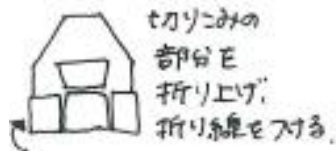 切りこみの
部分を
折り上げ、
折り線をつける。